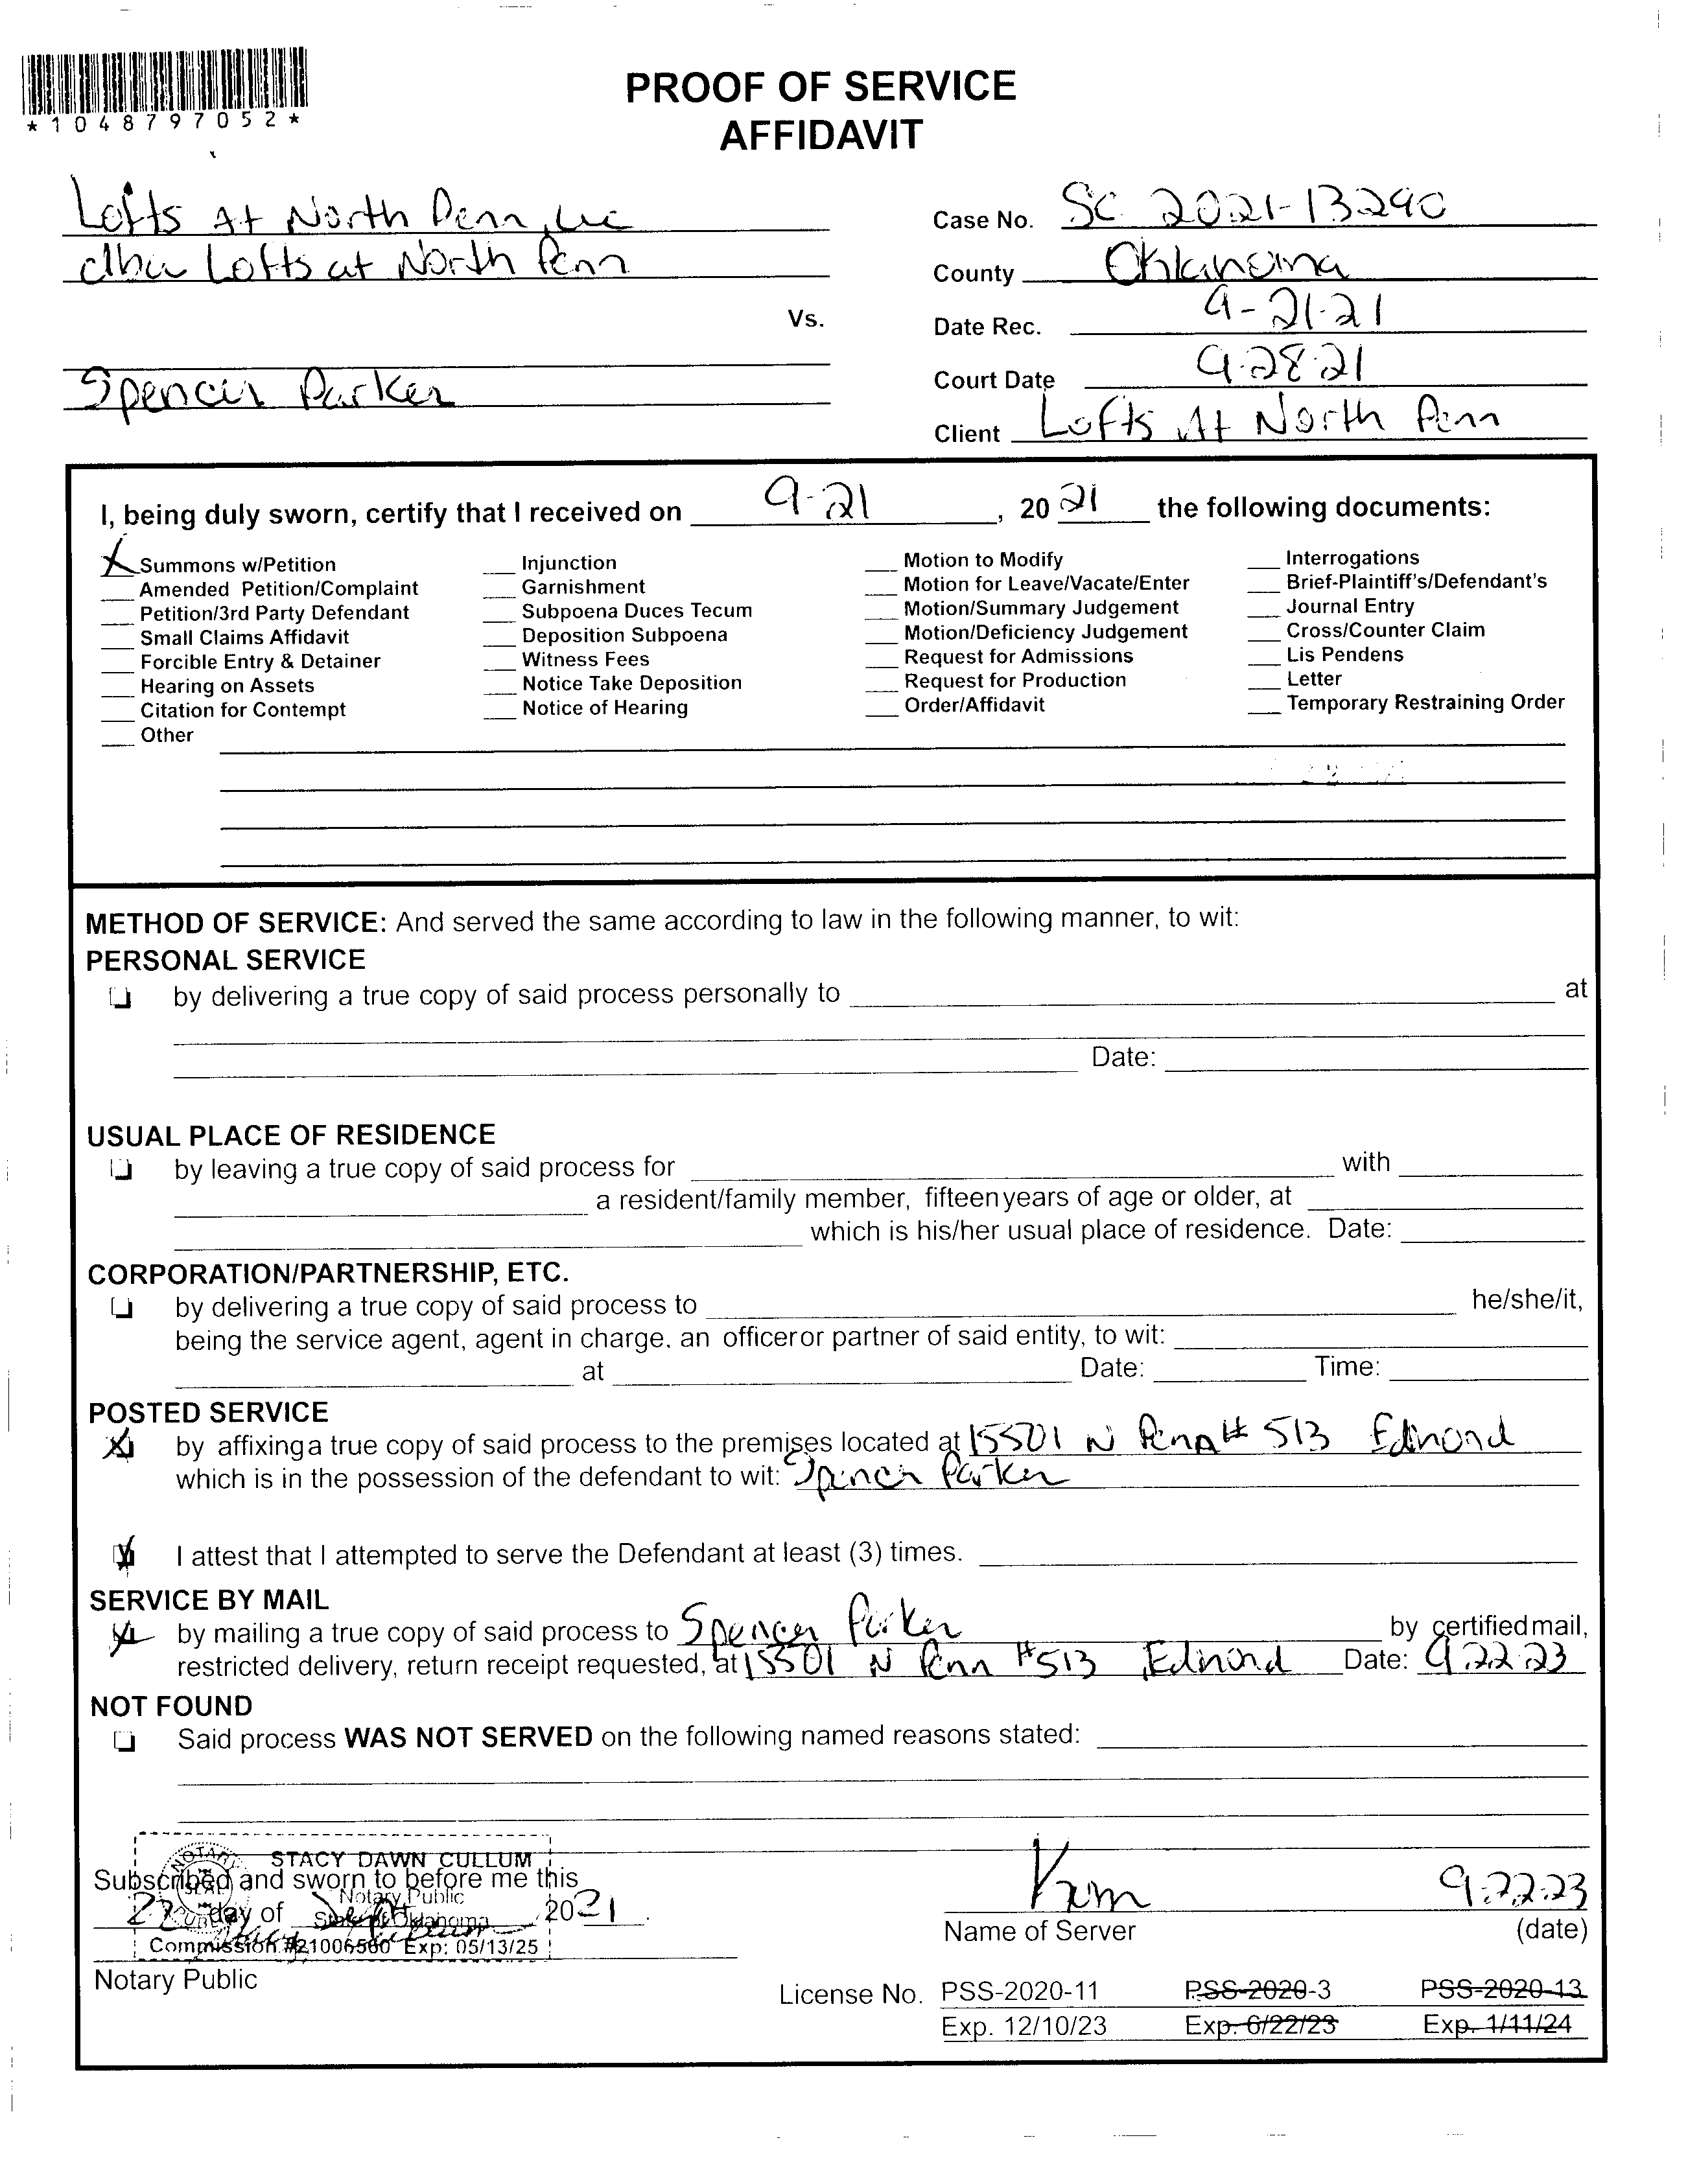 *1048797052*
PROOF OF SERVICE
AFFIDAVIT
Lofts At North Penn, LLC
dba Lofts at North Penn
Vs.
Spencer Parker
Case No. SC 2021-13290
County Oklahoma
Date Rec. 9-21-21
Court Date 9-28-21
Client Lofts At North Penn
I, being duly sworn, certify that I received on 9-21, 2021 the following documents:
X Summons w/Petition
Amended Petition/Complaint
Petition/3rd Party Defendant
Small Claims Affidavit
Forcible Entry & Detainer
Hearing on Assets
Citation for Contempt
Other
Injunction
Garnishment
Subpoena Duces Tecum
Deposition Subpoena
Witness Fees
Notice Take Deposition
Notice of Hearing
Motion to Modify
Motion for Leave/Vacate/Enter
Motion/Summary Judgement
Motion/Deficiency Judgement
Request for Admissions
Request for Production
Order/Affidavit
Interrogations
Brief-Plaintiff's/Defendant's
Journal Entry
Cross/Counter Claim
Lis Pendens
Letter
Temporary Restraining Order
METHOD OF SERVICE: And served the same according to law in the following manner, to wit:
PERSONAL SERVICE
by delivering a true copy of said process personally to at
Date:
USUAL PLACE OF RESIDENCE
by leaving a true copy of said process for with
a resident/family member, fifteen years of age or older, at
which is his/her usual place of residence. Date:
CORPORATION/PARTNERSHIP, ETC.
by delivering a true copy of said process to he/she/it,
being the service agent, agent in charge, an officer or partner of said entity, to wit:
at Date: Time:
POSTED SERVICE
X by affixing a true copy of said process to the premises located at 15501 N Penn # 513 Edmond
which is in the possession of the defendant to wit: Spencer Parker
X I attest that I attempted to serve the Defendant at least (3) times.
SERVICE BY MAIL
X by mailing a true copy of said process to Spencer Parker by certified mail,
restricted delivery, return receipt requested, at 15501 N Penn #513 Edmond Date: 9.22.23
NOT FOUND
Said process WAS NOT SERVED on the following named reasons stated:
STACY DAWN CULLUM
Subscribed and sworn to before me this
Notary Public
22 day of Sept 2021.
State of Oklahoma
Commission #21006560 Exp: 05/13/25
Notary Public
Kim 9.22.23
Name of Server (date)
License No. PSS-2020-11 PSS-2020-3 PSS-2020-13
Exp. 12/10/23 Exp. 6/22/23 Exp. 1/11/24